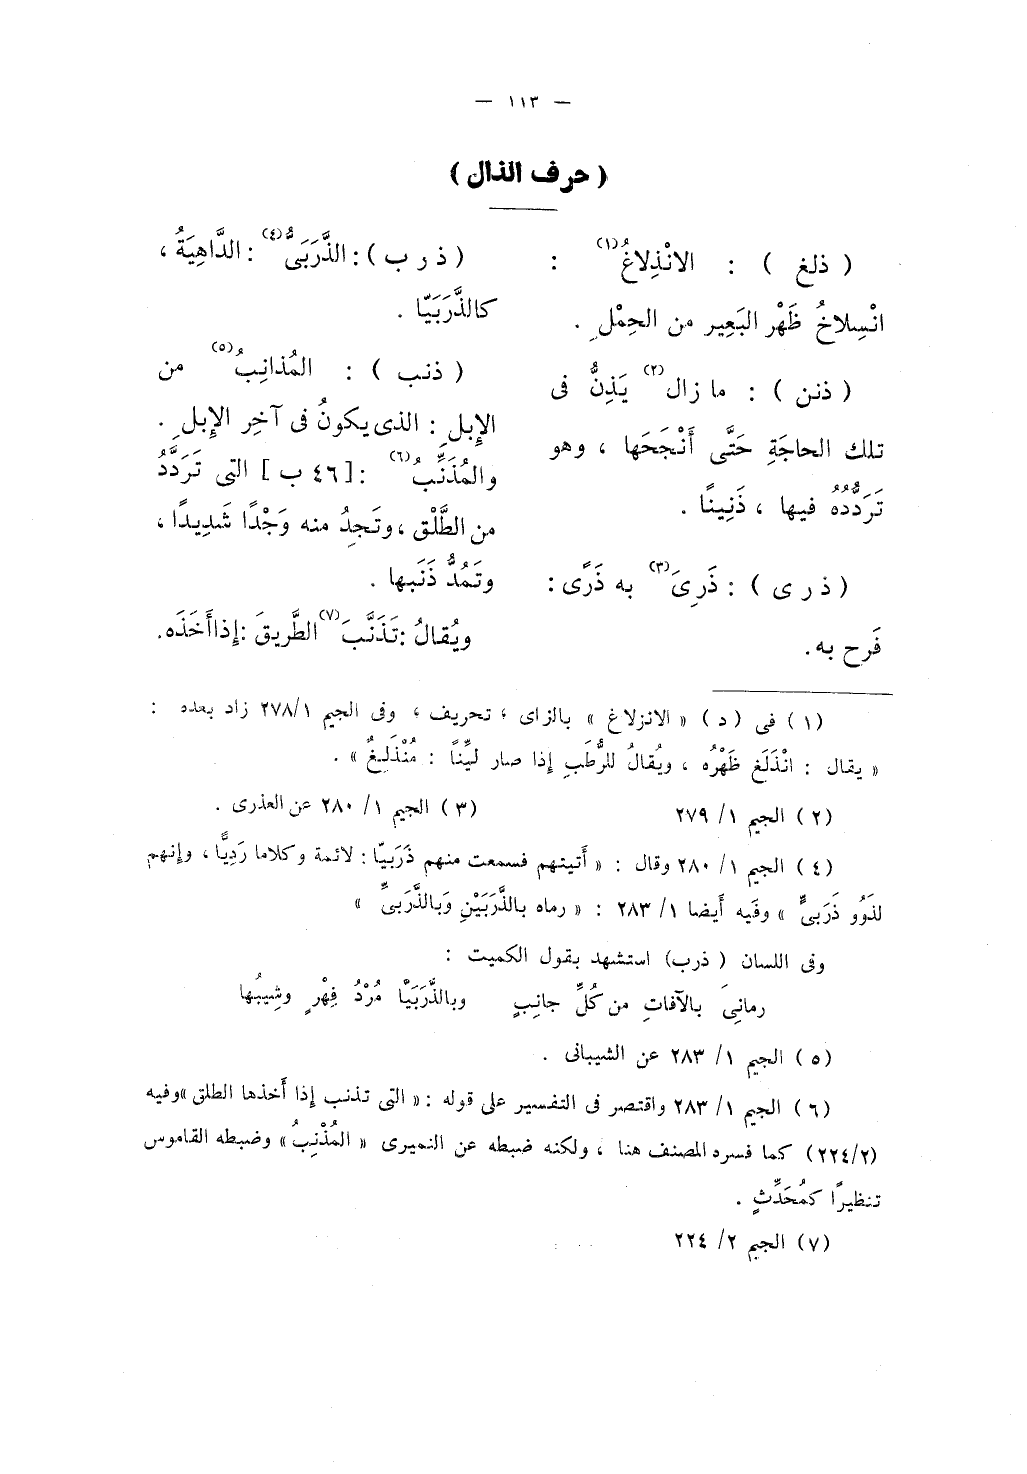 — ١١٣ —
( حرف الذال )
( ذلغ ) : الانْذِلاغُ(١) :
انْسِلاخُ ظَهْر البَعِير من الحِمْلِ .
( ذنن ) : ما زال(٢) يَذِنُّ فى
تلك الحاجَةِ حَتَّى أَنْجَحَها ، وهو
تَرَدُّدُه فيها ، ذَنِينًا .
( ذ ر ى ) : ذَرِىَ(٣) به ذَرًى :
فَرح به .
( ذ ر ب ) : الذَّرَبَىُّ(٤) : الدَّاهِيَةُ ،
كالذَّرَبَيّا .
( ذنب ) : المُذانِبُ(٥) من
الإِبلِ : الذى يكونُ فى آخِر الإِبلِ .
والمُذَنِّبُ(٦) : [ ٤٦ ب ] التى تَرَدَّدُ
من الطَّلْق ، وتَجِدُ منه وَجْدًا شَدِيدًا ،
وتَمُدُّ ذَنَبها .
ويُقالُ : تَذَنَّبَ(٧) الطَّريقَ : إذا أَخَذَه .
(١) فى (د) « الانزلاغ » بالزاى ، تحريف ، وفى الجيم ٢٧٨/١ زاد بعده :
« يقال : انْذَلَغ ظَهْرُه ، ويُقالُ للرُّطَبِ إذا صار لَيِّنًا : مُنْذَلِغٌ » .
(٢) الجيم ١/ ٢٧٩
(٣) الجيم ١/ ٢٨٠ عن العذرى .
(٤) الجيم ١/ ٢٨٠ وقال : « أَتيتهم فسمعت منهم ذَرَبيّا : لائمة وكلاما رَدِيًّا ، وإنهم
لذَوُو ذَرَبىٍّ » وفيه أَيضا ١/ ٢٨٣ : « رماه بالذَّرَبَيْنِ وَبالذَّرَبىِّ »
وفى اللسان ( ذرب) استشهد بقول الكميت :
رمانِىَ بالآفاتِ من كُلِّ جانِبٍ وبالذَّرَبَيَّا مُرْدُ فِهْرٍ وشِيبُها
(٥) الجيم ١/ ٢٨٣ عن الشيبانى .
(٦) الجيم ١/ ٢٨٣ واقتصر فى التفسير على قوله : « التى تذنب إذا أَخذها الطلق » وفيه
(٢٢٤/٢) كما فسره المصنف هنا ، ولكنه ضبطه عن النميرى « المُذْنِبُ » وضبطه القاموس
تنظيرًا كمُحَدِّثٍ .
(٧) الجيم ٢/ ٢٢٤